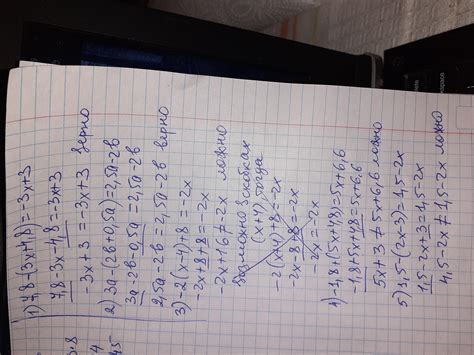 1) 4,8-(3x+4,8)=-3x+3
4,8-3x-4,8=-3x+3
-3x+3=-3x+3 верно
2) 3a-(2b+0,5a)=2,5a-2b
3a-2b-0,5a=2,5a-2b
2,5a-2b=2,5a-2b верно
3) -2(x-4)+8=-2x
-2x+8+8=-2x
-2x+16≠-2x ложно
возможно в скобках
(x+4), тогда
-2(x+4)+8=-2x
-2x-8+8=-2x
-2x=-2x
4) -1,8+(5x+4,8)=5x+6,6
-1,8+5x+4,8=5x+6,6
5x+3≠5x+6,6 ложно
5) 1,5-(2x-3)=1,5-2x
1,5-2x+3=1,5-2x
4,5-2x≠1,5-2x ложно